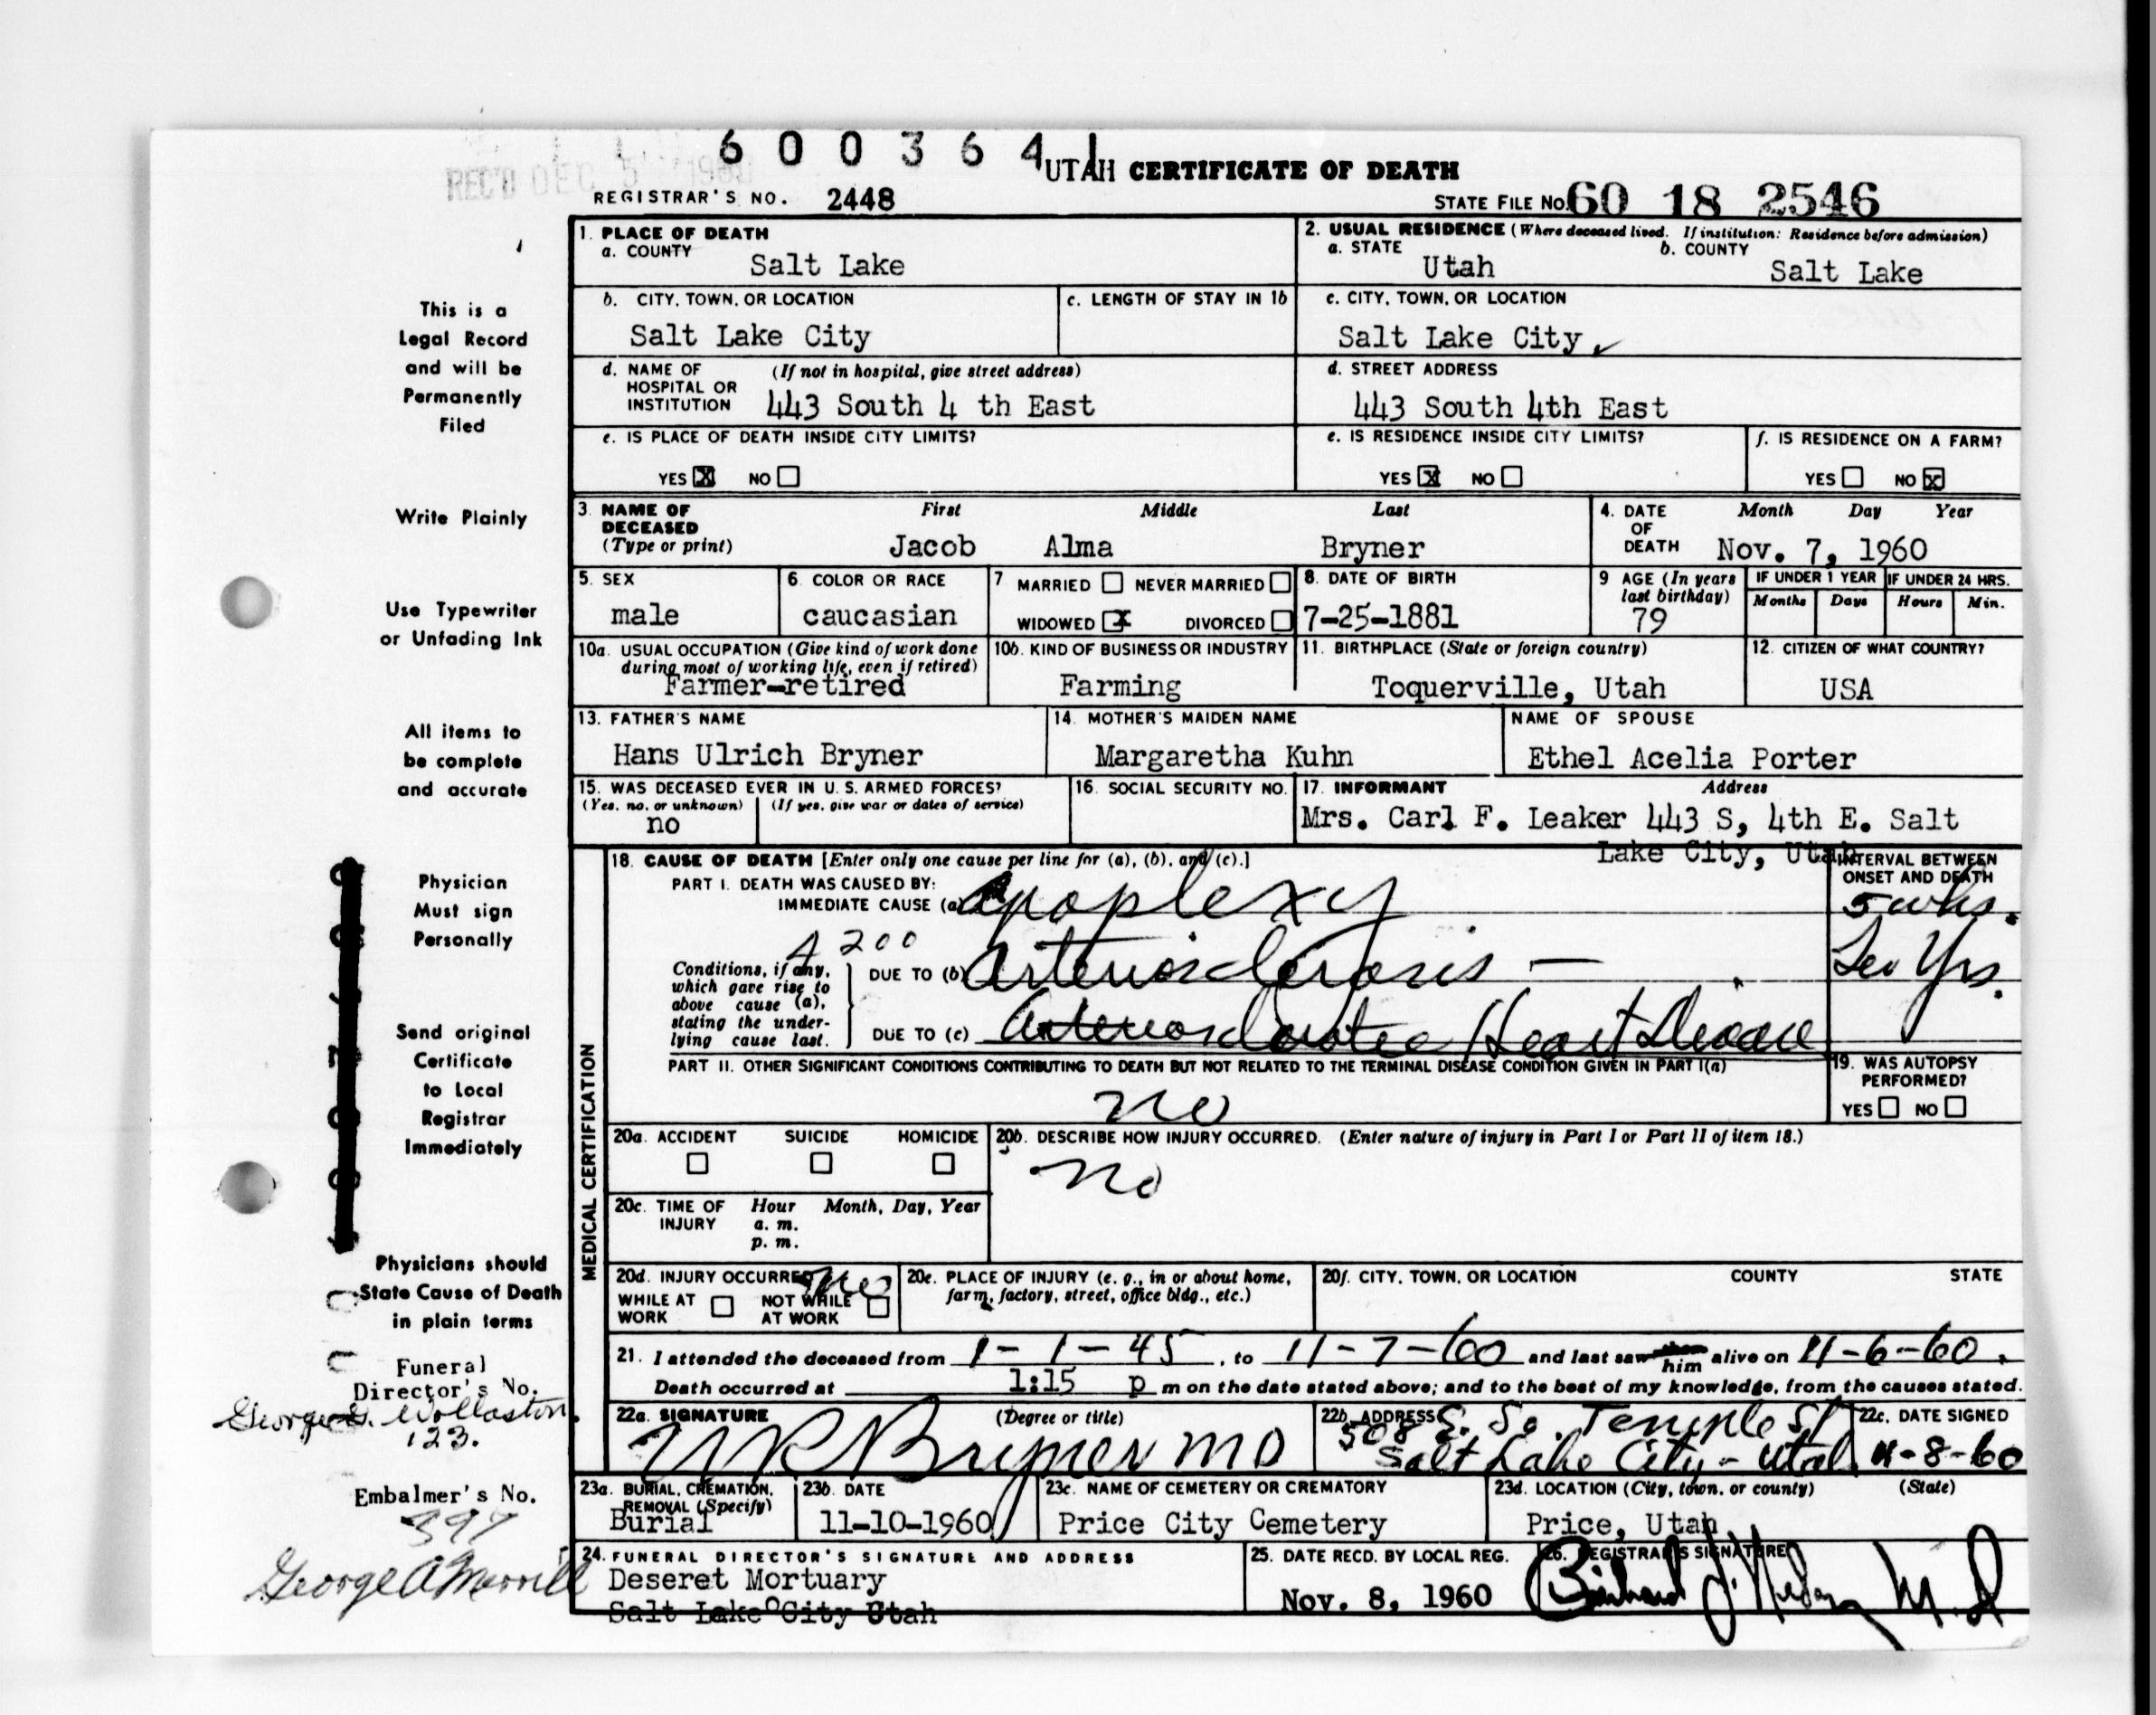 6 0 0 3 6 4 1
REC'D DEC 5 1960
UTAH CERTIFICATE OF DEATH
REGISTRAR'S NO. 2448
STATE FILE NO. 60 18 2546
1. PLACE OF DEATH
a. COUNTY
Salt Lake
2. USUAL RESIDENCE (Where deceased lived. If institution: Residence before admission)
a. STATE
b. COUNTY
Utah
Salt Lake
b. CITY, TOWN, OR LOCATION
c. LENGTH OF STAY IN 1b
c. CITY, TOWN, OR LOCATION
Salt Lake City
Salt Lake City
d. NAME OF (If not in hospital, give street address)
HOSPITAL OR
INSTITUTION
443 South 4 th East
d. STREET ADDRESS
443 South 4th East
e. IS PLACE OF DEATH INSIDE CITY LIMITS?
YES X NO
e. IS RESIDENCE INSIDE CITY LIMITS?
YES X NO
f. IS RESIDENCE ON A FARM?
YES NO X
3. NAME OF
DECEASED
(Type or print)
First Middle Last
Jacob Alma Bryner
4. DATE
OF
DEATH
Month Day Year
Nov. 7, 1960
5. SEX
male
6. COLOR OR RACE
caucasian
7 MARRIED NEVER MARRIED
WIDOWED X DIVORCED
8. DATE OF BIRTH
7-25-1881
9 AGE (In years
last birthday)
79
IF UNDER 1 YEAR
Months Days
IF UNDER 24 HRS.
Hours Min.
10a. USUAL OCCUPATION (Give kind of work done
during most of working life, even if retired)
Farmer-retired
10b. KIND OF BUSINESS OR INDUSTRY
Farming
11. BIRTHPLACE (State or foreign country)
Toquerville, Utah
12. CITIZEN OF WHAT COUNTRY?
USA
13. FATHER'S NAME
Hans Ulrich Bryner
14. MOTHER'S MAIDEN NAME
Margaretha Kuhn
NAME OF SPOUSE
Ethel Acelia Porter
15. WAS DECEASED EVER IN U. S. ARMED FORCES?
(Yes, no, or unknown) (If yes, give war or dates of service)
no
16. SOCIAL SECURITY NO.
17. INFORMANT Address
Mrs. Carl F. Leaker 443 S, 4th E. Salt
Lake City, Utah
18. CAUSE OF DEATH [Enter only one cause per line for (a), (b), and (c).]
INTERVAL BETWEEN
ONSET AND DEATH
PART I. DEATH WAS CAUSED BY:
IMMEDIATE CAUSE (a)
apoplexy
5 wks.
4200
Conditions, if any,
which gave rise to
above cause (a),
stating the under-
lying cause last.
DUE TO (b) Arteriosclerosis —
Yrs.
DUE TO (c) Arteriosclerotic Heart Disease
PART II. OTHER SIGNIFICANT CONDITIONS CONTRIBUTING TO DEATH BUT NOT RELATED TO THE TERMINAL DISEASE CONDITION GIVEN IN PART I(a)
no
19. WAS AUTOPSY
PERFORMED?
YES NO
MEDICAL CERTIFICATION
20a. ACCIDENT SUICIDE HOMICIDE
20b. DESCRIBE HOW INJURY OCCURRED. (Enter nature of injury in Part I or Part II of item 18.)
no
20c. TIME OF
INJURY
Hour Month, Day, Year
a. m.
p. m.
20d. INJURY OCCURRED
no
WHILE AT
WORK
NOT WHILE
AT WORK
20e. PLACE OF INJURY (e. g., in or about home,
farm, factory, street, office bldg., etc.)
20f. CITY, TOWN, OR LOCATION COUNTY STATE
21. I attended the deceased from 1-1-45, to 11-7-60 and last saw him alive on 11-6-60.
Death occurred at 1:15 p m on the date stated above; and to the best of my knowledge, from the causes stated.
22a. SIGNATURE (Degree or title)
Bryner MD
22b. ADDRESS
508 E. So. Temple St
Salt Lake City - Utah
22c. DATE SIGNED
11-8-60
23a. BURIAL, CREMATION,
REMOVAL (Specify)
Burial
23b. DATE
11-10-1960
23c. NAME OF CEMETERY OR CREMATORY
Price City Cemetery
23d. LOCATION (City, town, or county) (State)
Price, Utah
24. FUNERAL DIRECTOR'S SIGNATURE AND ADDRESS
Deseret Mortuary
Salt Lake City Utah
25. DATE RECD. BY LOCAL REG.
Nov. 8, 1960
26. REGISTRAR'S SIGNATURE
This is a
Legal Record
and will be
Permanently
Filed
Write Plainly
Use Typewriter
or Unfading Ink
All items to
be complete
and accurate
Physician
Must sign
Personally
Send original
Certificate
to Local
Registrar
Immediately
Physicians should
State Cause of Death
in plain terms
Funeral
Director's No.
George G. Wollaston
123.
Embalmer's No.
397
George A Merrill